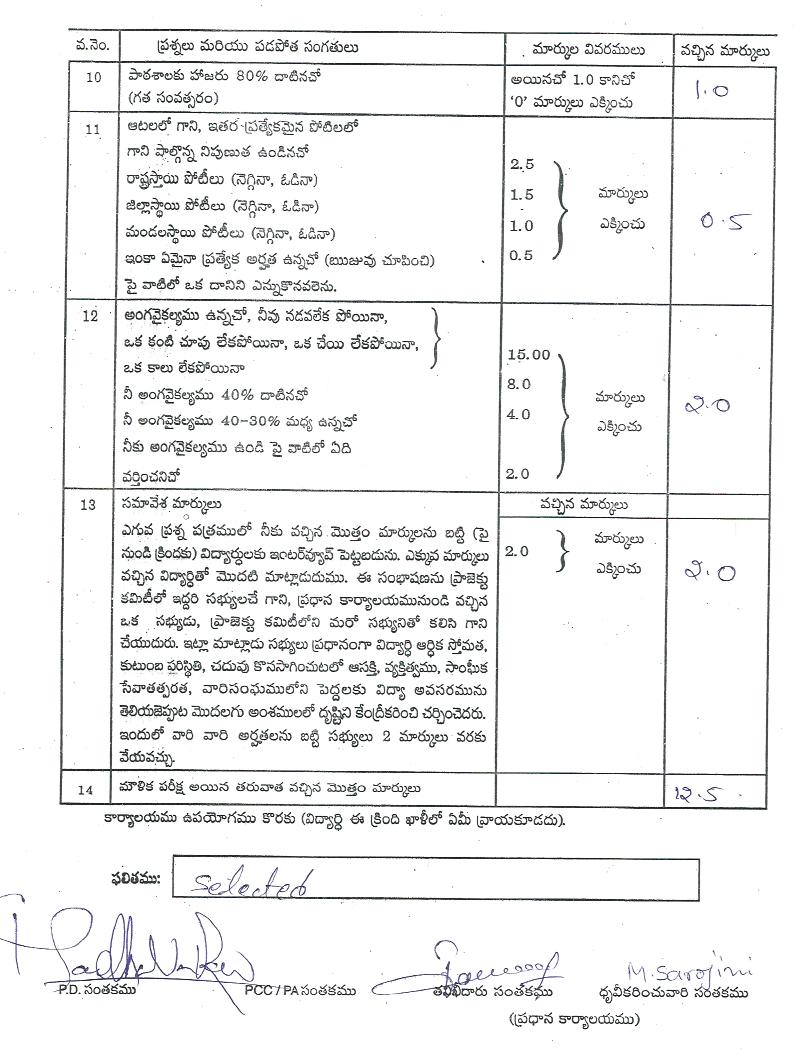 వ.నెం. ప్రశ్నలు మరియు పడపోత సంగతులు మార్కుల వివరములు వచ్చిన మార్కులు
10 పాఠశాలకు హాజరు 80% దాటినచో అయినచో 1.0 కానిచో 1.0
(గత సంవత్సరం) '0' మార్కులు ఎక్కించు
11 ఆటలలో గాని, ఇతర ప్రత్యేకమైన పోటిలలో
గాని పాల్గొన్న నిపుణుత ఉండినచో
రాష్ట్రస్తాయి పోటీలు (నెగ్గినా, ఓడినా) 2.5
జిల్లాస్థాయి పోటీలు (నెగ్గినా, ఓడినా) 1.5 మార్కులు
మండలస్థాయి పోటీలు (నెగ్గినా, ఓడినా) 1.0 ఎక్కించు 0.5
ఇంకా ఏమైనా ప్రత్యేక అర్హత ఉన్నచో (ఋజువు చూపించి) 0.5
పై వాటిలో ఒక దానిని ఎన్నుకొనవలెను.
12 అంగవైకల్యము ఉన్నచో, నీవు నడవలేక పోయినా,
ఒక కంటి చూపు లేకపోయినా, ఒక చేయి లేకపోయినా,
ఒక కాలు లేకపోయినా 15.00
నీ అంగవైకల్యము 40% దాటినచో 8.0 మార్కులు
నీ అంగవైకల్యము 40-30% మధ్య ఉన్నచో 4.0 ఎక్కించు 2.0
నీకు అంగవైకల్యము ఉండి పై వాటిలో ఏది
వర్తించనిచో 2.0
13 సమావేశ మార్కులు వచ్చిన మార్కులు
ఎగువ ప్రశ్న పత్రములో నీకు వచ్చిన మొత్తం మార్కులను బట్టి (పై
నుండి క్రిందకు) విద్యార్ధులకు ఇంటర్వ్యూవ్ పెట్టబడును. ఎక్కువ మార్కులు 2.0 మార్కులు
వచ్చిన విద్యార్ధితో మొదటి మాట్లాడుదుము. ఈ సంభాషణను ప్రాజెక్టు ఎక్కించు 2.0
కమిటీలో ఇద్దరి సభ్యులచే గాని, ప్రధాన కార్యాలయమునుండి వచ్చిన
ఒక సభ్యుడు, ప్రాజెక్టు కమిటీలోని మరో సభ్యునితో కలిసి గాని
చేయుదురు. ఇట్లా మాట్లాడు సభ్యులు ప్రధానంగా విద్యార్ధి ఆర్ధిక స్తోమత,
కుటుంబ పరిస్థితి, చదువు కొనసాగించుటలో ఆసక్తి, వ్యక్తిత్వము, సాంఘీక
సేవాతత్పరత, వారిసంఘములోని పెద్దలకు విద్యా అవసరమును
తెలియజెప్పుట మొదలగు అంశములలో దృష్టిని కేంద్రీకరించి చర్చించెదరు.
ఇందులో వారి వారి అర్హతలను బట్టి సభ్యులు 2 మార్కులు వరకు
వేయవచ్చు.
14 మౌళిక పరీక్ష అయిన తరువాత వచ్చిన మొత్తం మార్కులు 12.5
కార్యాలయము ఉపయోగము కొరకు (విద్యార్ధి ఈ క్రింది ఖాళీలో ఏమీ వ్రాయకూడదు).
ఫలితము: selected
M. Sarojini
P.D. సంతకము PCC / PA సంతకము తనిఖీదారు సంతకము ధృవీకరించువారి సంతకము
(ప్రధాన కార్యాలయము)